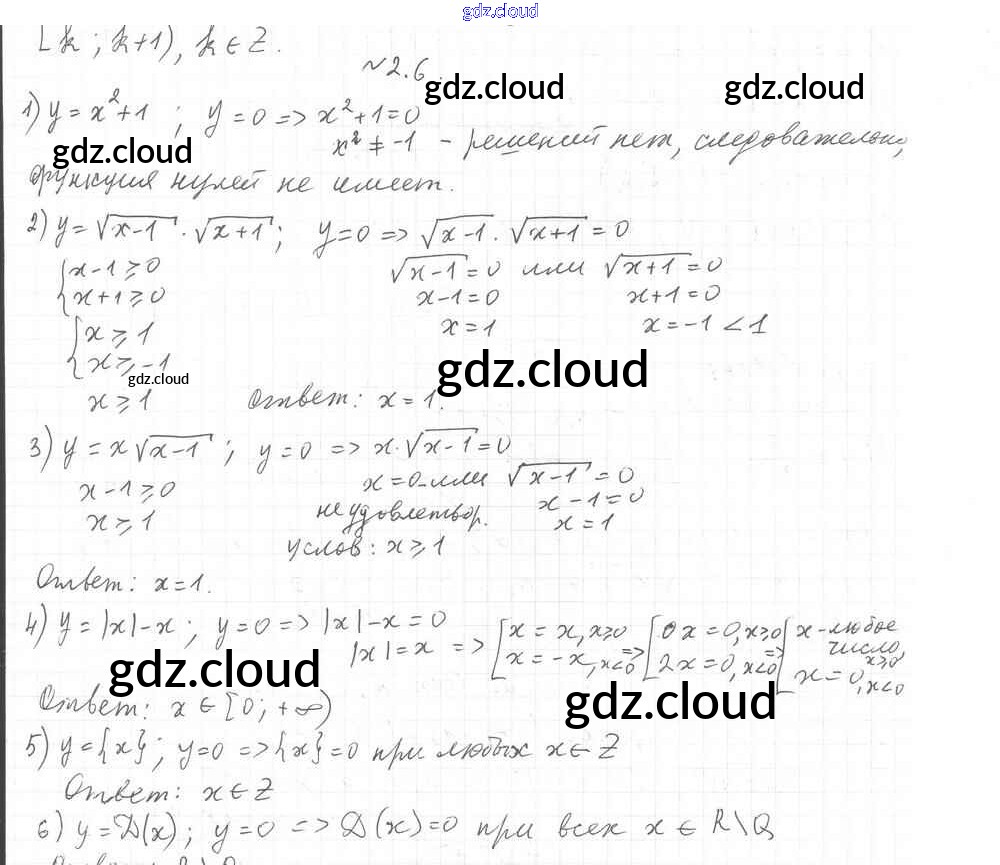 gdz.cloud
[k; k+1), k ∈ Z.
№2.6.
gdz.cloud gdz.cloud
1) y = x²+1 ; y = 0 => x²+1 = 0
gdz.cloud x² ≠ -1 - решений нет, следовательно,
функция нулей не имеет.
2) y = √(x-1) · √(x+1) ; y = 0 => √(x-1) · √(x+1) = 0
{ x-1 ≥ 0 √(x-1) = 0 или √(x+1) = 0
{ x+1 ≥ 0 x-1 = 0 x+1 = 0
{ x ≥ 1 x = 1 x = -1 < 1
{ x ≥ -1 gdz.cloud
gdz.cloud
x ≥ 1 Ответ: x = 1.
3) y = x√(x-1) ; y = 0 => x·√(x-1) = 0
x-1 ≥ 0 x = 0 - или √(x-1) = 0
x ≥ 1 не удовлетвор. x-1 = 0
x = 1
услов: x ≥ 1
Ответ: x = 1.
4) y = |x|-x ; y = 0 => |x|-x = 0
|x| = x => [ x = x, x ≥ 0 => [ 0x = 0, x ≥ 0 => [ x - любое число, x ≥ 0
[ x = -x, x < 0 [ 2x = 0, x < 0 [ x = 0, x < 0
gdz.cloud gdz.cloud
Ответ: x ∈ [0; +∞)
5) y = {x} ; y = 0 => {x} = 0 при любых x ∈ Z
Ответ: x ∈ Z
6) y = D(x) ; y = 0 => D(x) = 0 при всех x ∈ R\Q